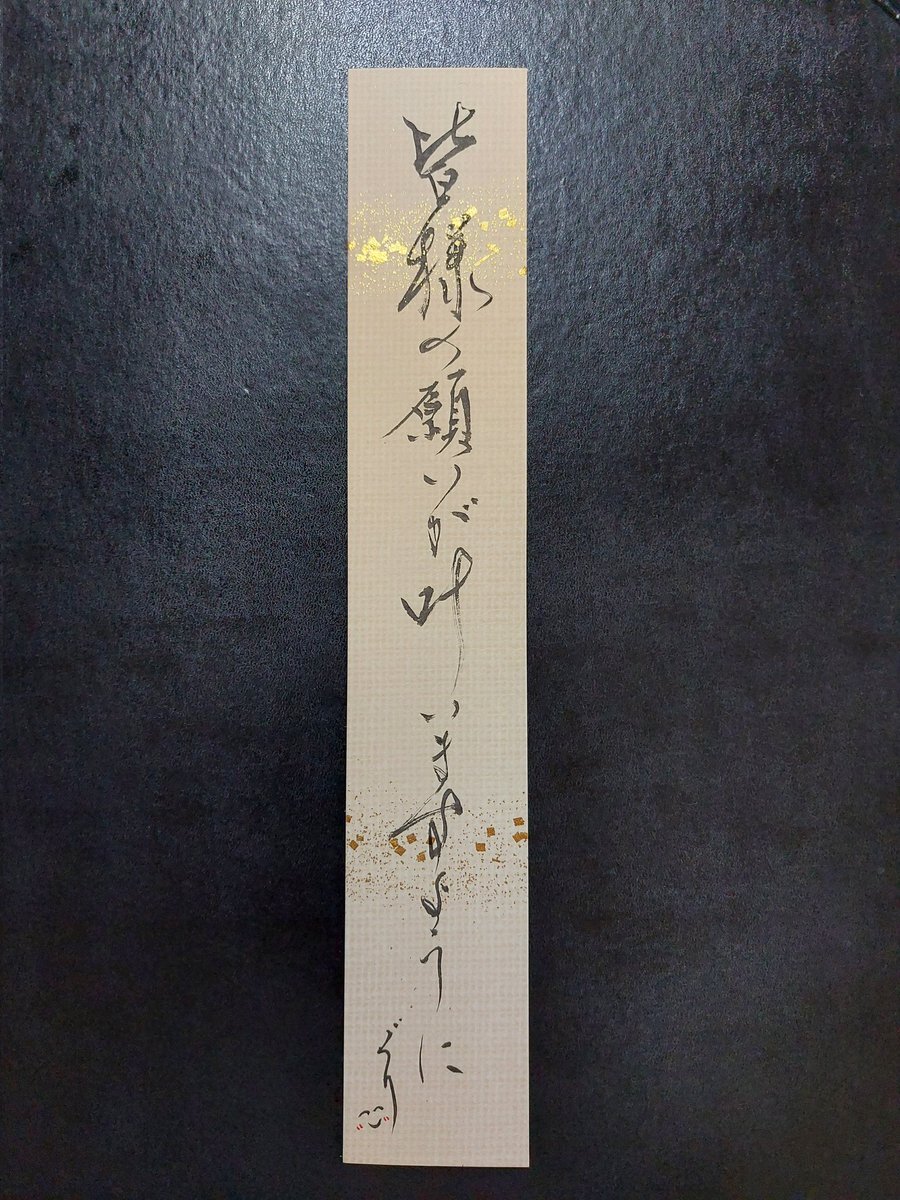 皆様の願いが叶いますように
ぐり